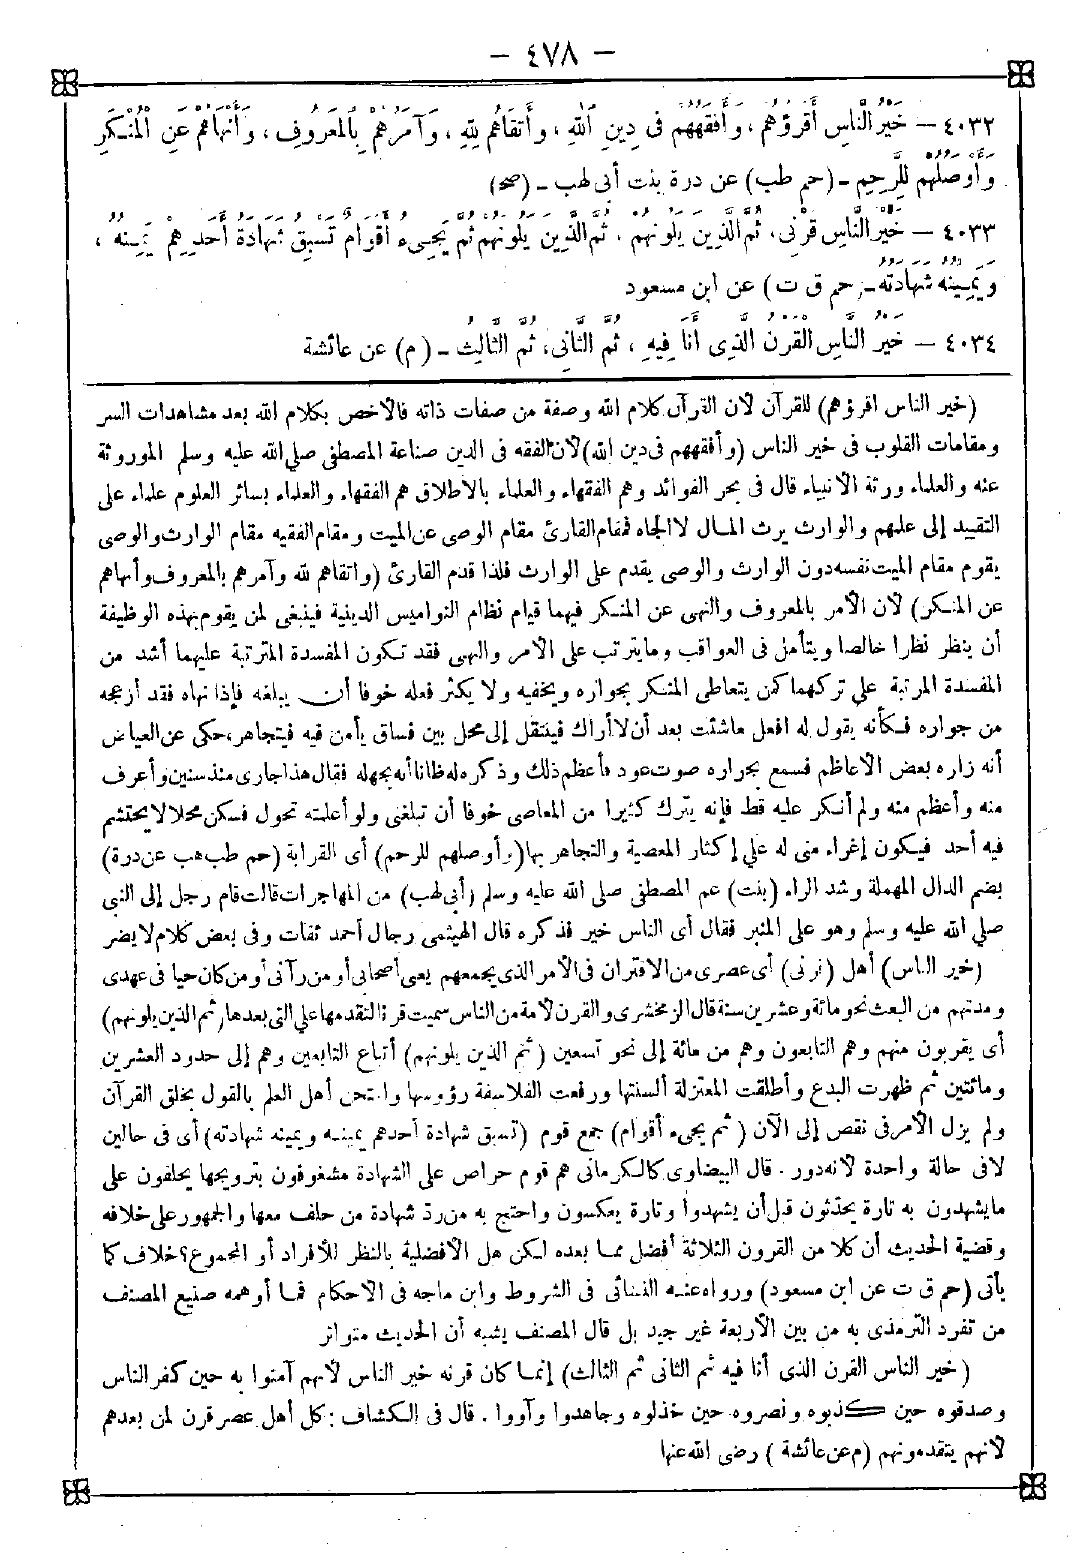 — ٤٧٨ —
٤٠٣٢ — خَيْرُ النَّاسِ أَقْرَؤُهُمْ، وَأَفْقَهُهُمْ فِى دِينِ اللهِ، وَأَتْقَاهُمْ لِلهِ، وَآمَرُهُمْ بِالْمَعْرُوفِ، وَأَنْهَاهُمْ عَنِ الْمُنْكَرِ
وَأَوْصَلُهُمْ لِلرَّحِمِ - (حم طب) عن درة بنت أبى لهب - (صح)
٤٠٣٣ — خَيْرُ النَّاسِ قَرْنِى، ثُمَّ الَّذِينَ يَلُونَهُمْ، ثُمَّ الَّذِينَ يَلُونَهُمْ ثُمَّ يَجِىءُ أَقْوَامٌ تَسْبِقُ شَهَادَةُ أَحَدِهِمْ يَمِينَهُ،
وَيَمِينُهُ شَهَادَتَهُ - (حم ق ت) عن ابن مسعود
٤٠٣٤ — خَيْرُ النَّاسِ الْقَرْنُ الَّذِى أَنَا فِيهِ، ثُمَّ الثَّانِى، ثُمَّ الثَّالِثُ - (م) عن عائشة
(خير الناس اقرؤهم) للقرآن لأن القرآن كلام الله وصفة من صفات ذاته فالاخص بكلام الله بعد مشاهدات السر
ومقامات القلوب فى خير الناس (وأفقههم فى دين الله) لأن الفقه فى الدين صناعة المصطفى صلى الله عليه وسلم الموروثة
عنه والعلماء ورثة الانبياء قال فى بحر الفوائد وهم الفقهاء والعلماء بالاطلاق هم الفقهاء والعلماء بسائر العلوم علماء على
التقييد إلى علمهم والوارث يرث المال لا الجاه فمقام القارئ مقام الوصى عن الميت ومقام الفقيه مقام الوارث والوصى
يقوم مقام الميت نفسه دون الوارث والوصى يقدم على الوارث فلذا قدم القارئ (واتقاهم لله وآمرهم بالمعروف وأنهاهم
عن المنكر) لأن الأمر بالمعروف والنهى عن المنكر فيهما قيام نظام النواميس الدينية فينبغى لمن يقوم بهذه الوظيفة
أن ينظر نظرا خالصا ويتأمل فى العواقب وما يترتب على الامر والنهى فقد تكون المفسدة المترتبة عليهما أشد من
المفسدة المرتبة على تركهما كمن يتعاطى المنكر بجواره ويخفيه ولا يكثر فعله خوفا أن يبلغه فإذا نهاه فقد أزعجه
من جواره فكأنه يقول له افعل ماشئت بعد أن لا أراك فينتقل إلى محل بين فساق يأمن فيه فيتجاهر، حكى عن العياض
أنه زاره بعض الأعاظم فسمع بجواره صوت عود فأعظم ذلك وذكره له ظانا أنه يجهله فقال هذا جارى منذ سنين وأعرف
منه وأعظم منه ولم أنكر عليه قط فإنه يترك كثيرا من المعاصى خوفا أن تبلغنى ولو أعلمته تحول فسكن محلا لا يحتشم
فيه أحد فيكون إغراء منى له على إكثار المعصية والتجاهر بها (وأوصلهم للرحم) أى القرابة (حم طب هب عن درة)
بضم الدال المهملة وشد الراء (بنت) عم المصطفى صلى الله عليه وسلم (أبى لهب) من المهاجرات قالت قام رجل إلى النبى
صلى الله عليه وسلم وهو على المنبر فقال أى الناس خير فذكره قال الهيثمى رجال أحمد ثقات وفى بعض كلام لا يضر
(خير الناس) أهل (قرنى) أى عصرى من الاقتران فى الأمر الذى يجمعهم يعنى أصحابى أو من رآنى أو من كان حيا فى عهدى
ومدتهم من البعث نحو مائة وعشرين سنة قال الزمخشرى والقرن لأمة من الناس سميت قرنا لتقدمها على التى بعدها (ثم الذين يلونهم)
أى يقربون منهم وهم التابعون وهم من مائة إلى نحو تسعين (ثم الذين يلونهم) أتباع التابعين وهم إلى حدود العشرين
ومائتين ثم ظهرت البدع وأطلقت المعتزلة ألسنتها ورفعت الفلاسفة رؤوسها وامتحن أهل العلم بالقول بخلق القرآن
ولم يزل الأمر فى نقص إلى الآن (ثم يجىء أقوام) جمع قوم (تسبق شهادة أحدهم يمينه ويمينه شهادته) أى فى حالين
لا فى حالة واحدة لأنه دور . قال البيضاوى كالكرمانى هم قوم حراص على الشهادة مشغوفون بترويحها يحلفون على
مايشهدون به تارة يحلفون قبل أن يشهدوا وتارة يعكسون واحتج به من رد شهادة من حلف معها والجمهور على خلافه
وقضية الحديث أن كلا من القرون الثلاثة أفضل مما بعده لكن هل الأفضلية بالنظر للأفراد أو المجموع؟ خلاف كما
يأتى (حم ق ت عن ابن مسعود) ورواه عنه النسائى فى الشروط وابن ماجه فى الاحكام فما أوهمه صنيع المصنف
من تفرد الترمذى به من بين الأربعة غير جيد بل قال المصنف يشبه أن الحديث متواتر
(خير الناس القرن الذى أنا فيه ثم الثانى ثم الثالث) إنما كان قرنه خير الناس لأنهم آمنوا به حين كفر الناس
وصدقوه حين كذبوه ونصروه حين خذلوه وجاهدوا وآووا . قال فى الكشاف : كل أهل عصر قرن لمن بعدهم
لأنهم يتقدمونهم (م عن عائشة) رضى الله عنها